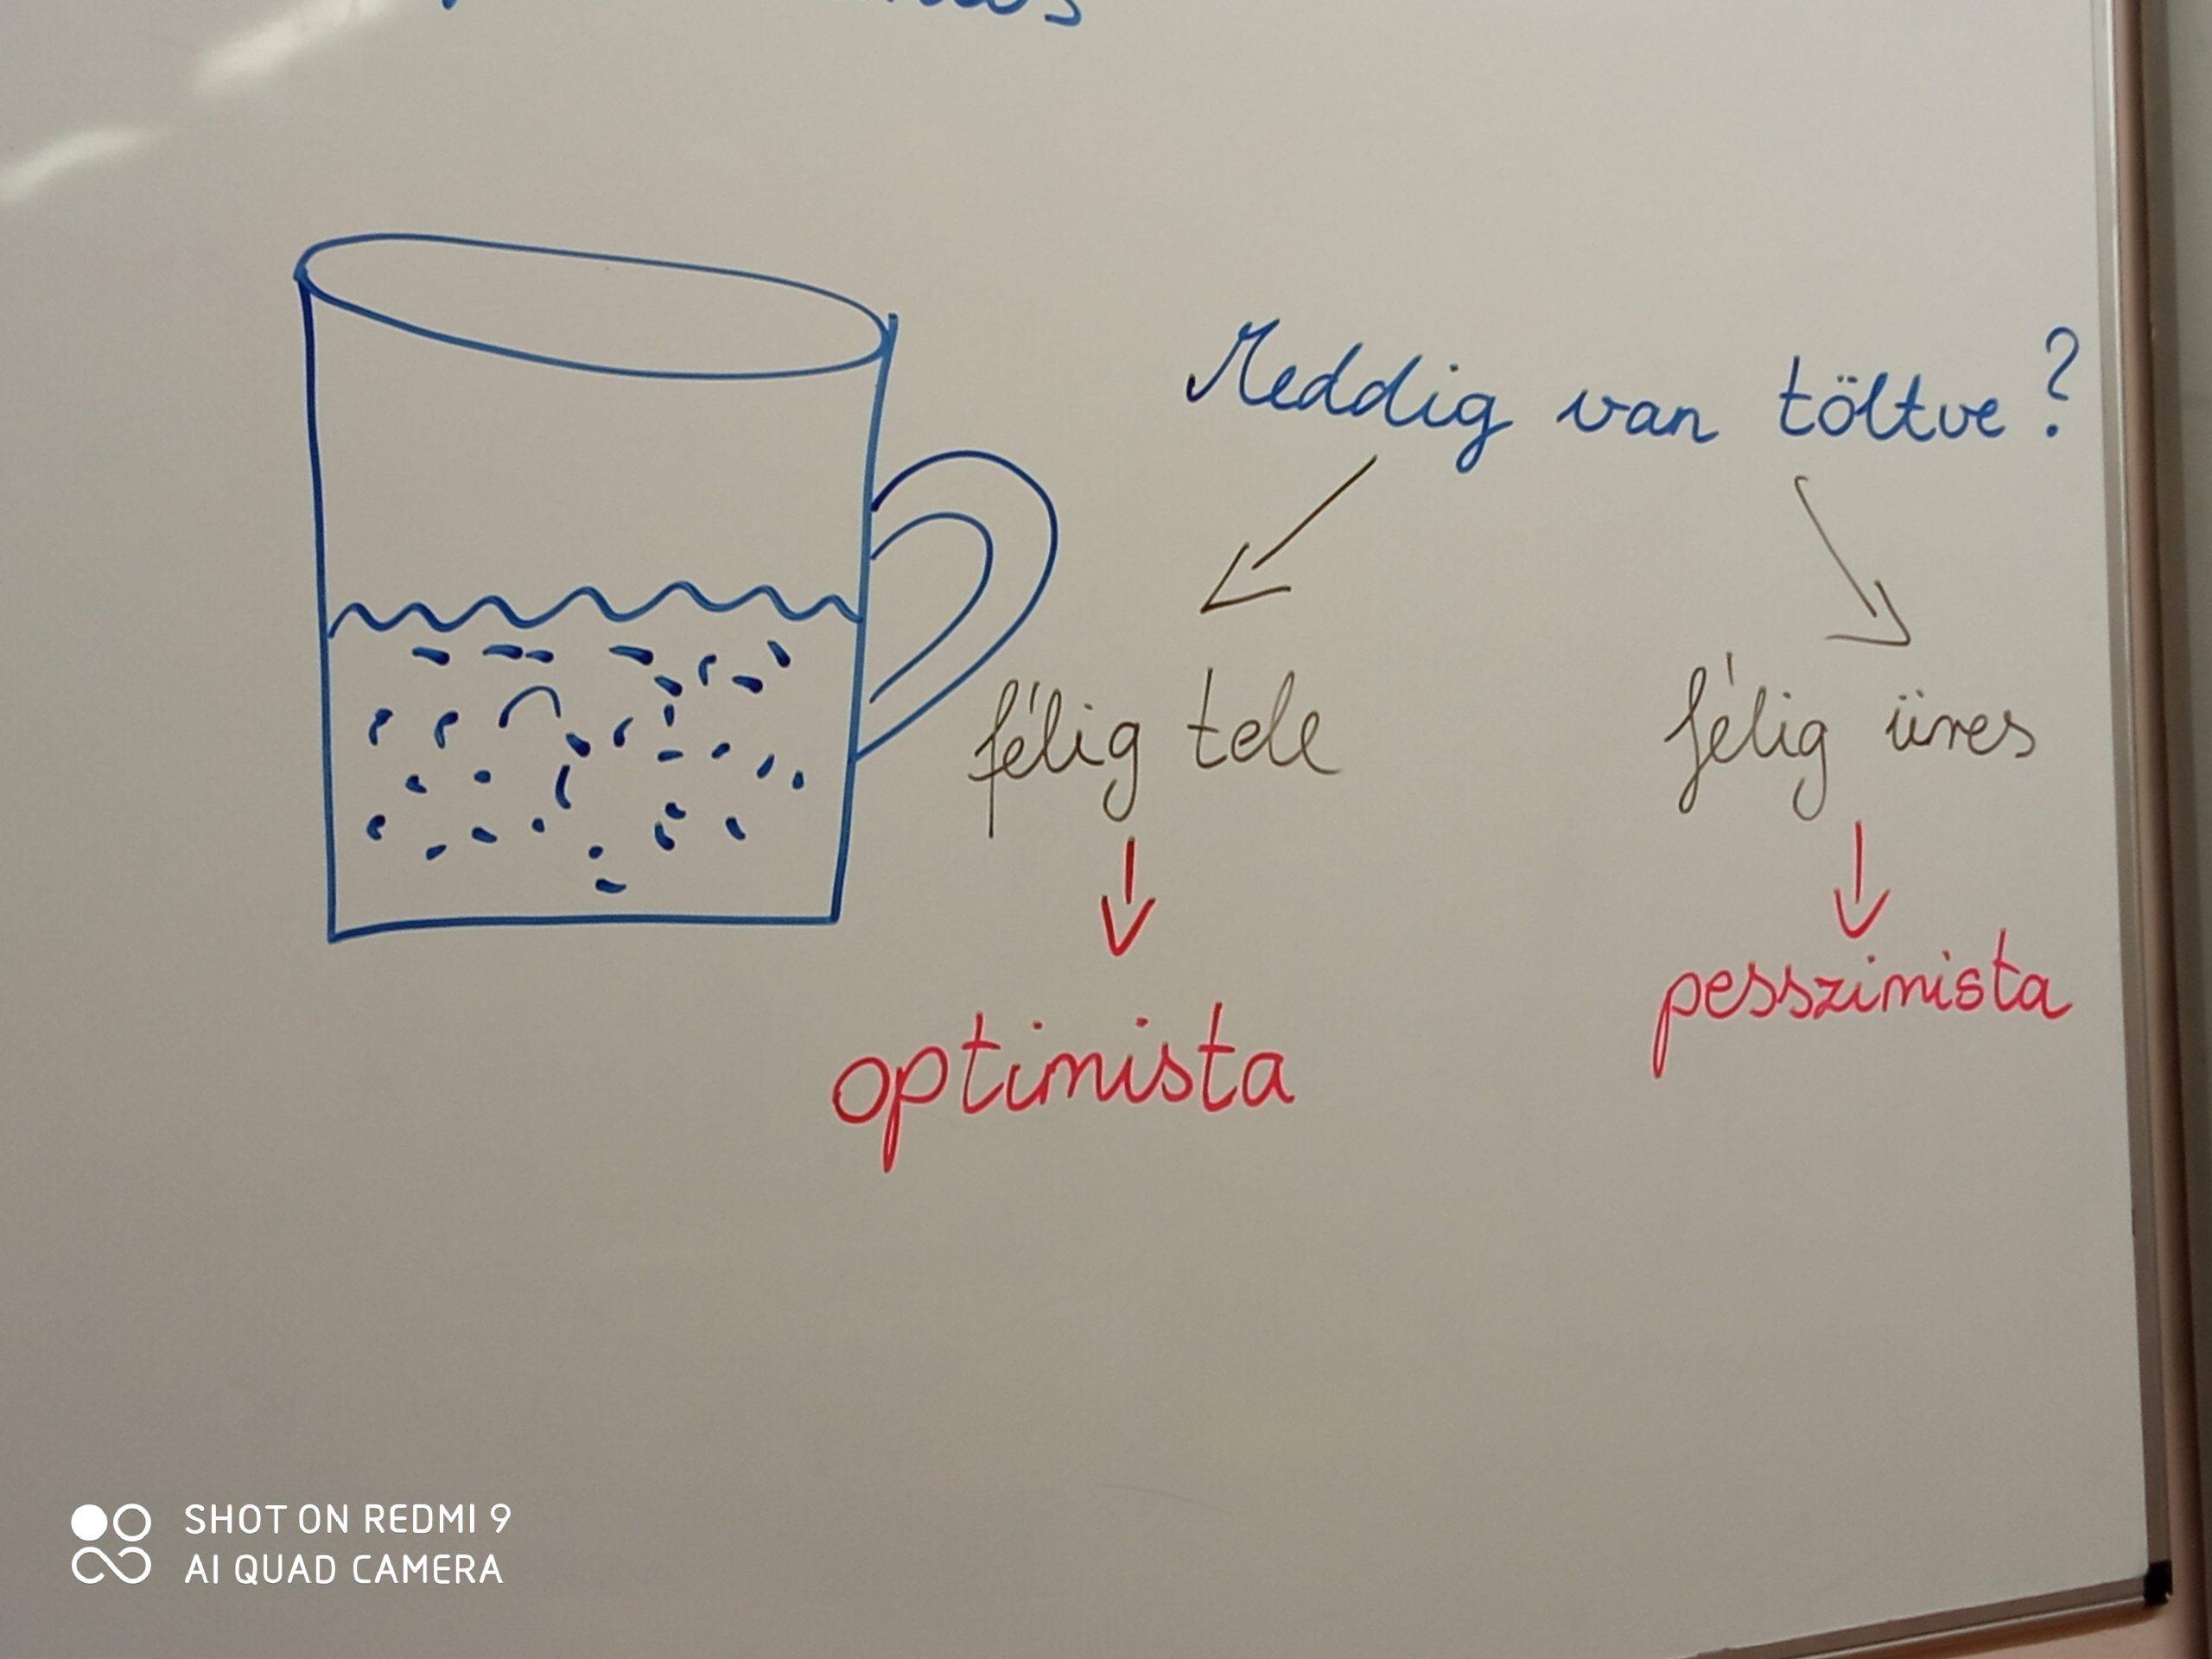 Meddig van töltve?
félig tele
félig üres
optimista
pesszimista
SHOT ON REDMI 9
AI QUAD CAMERA